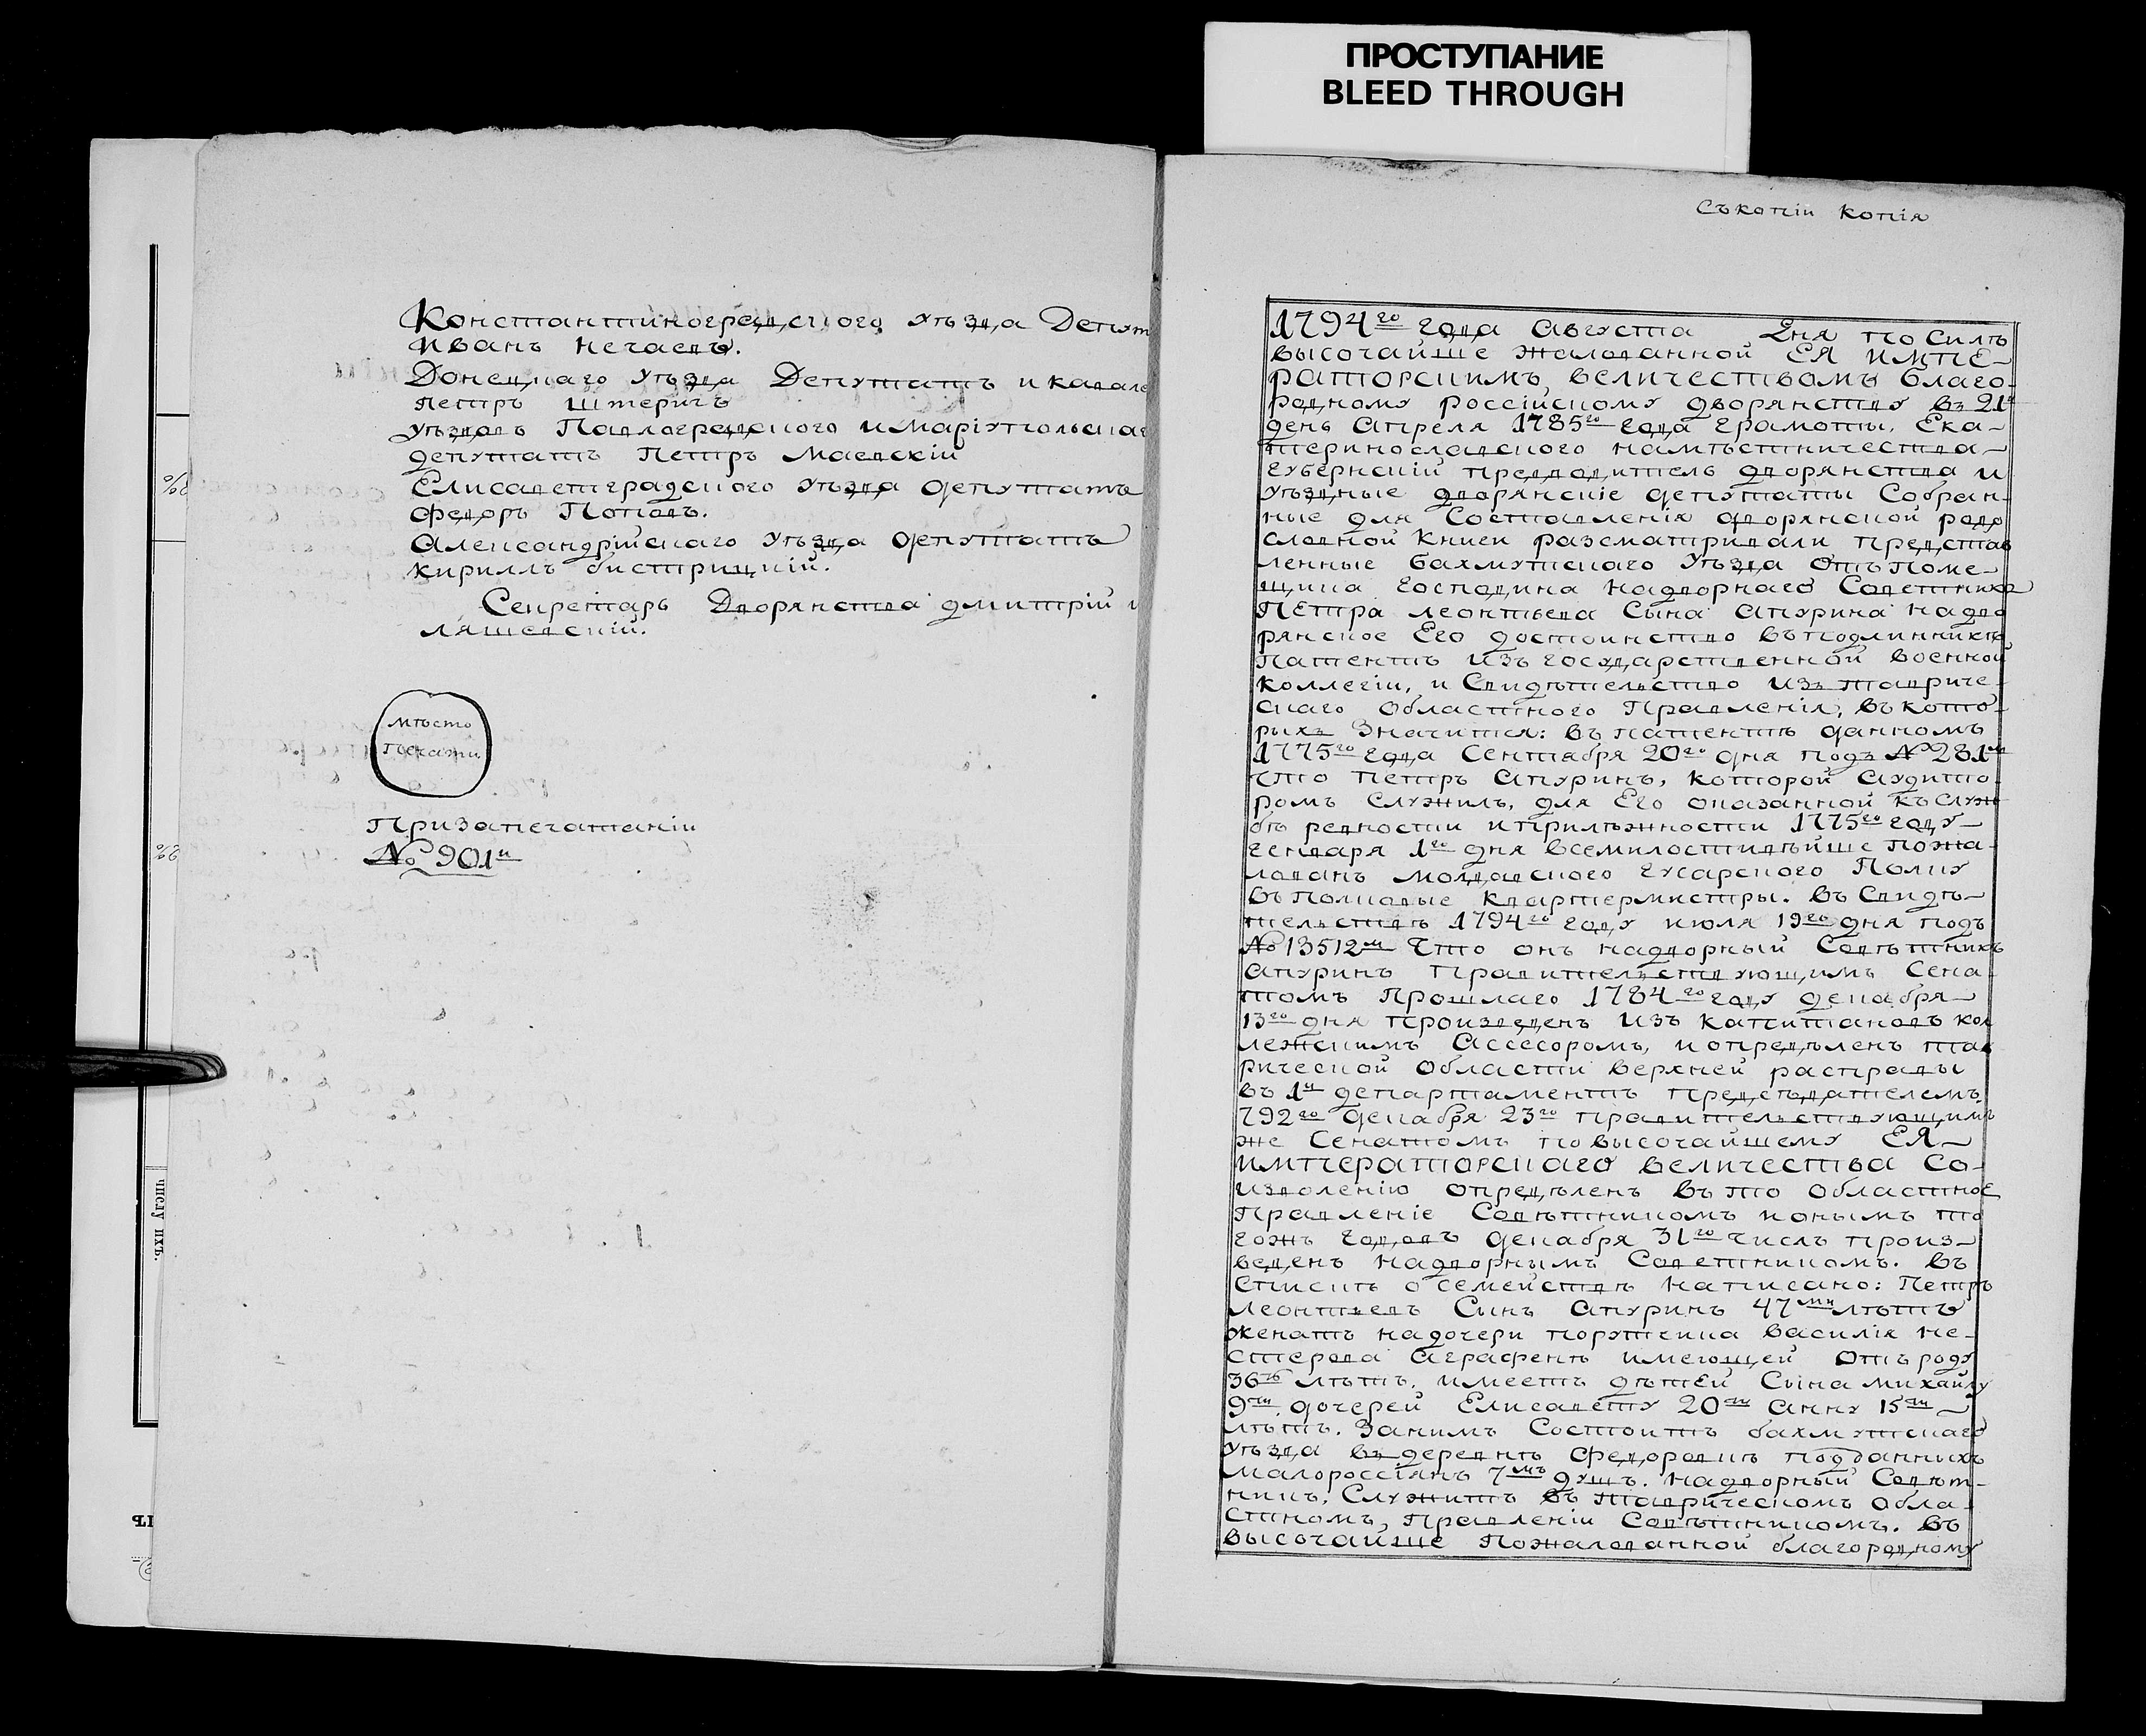 ПРОСТУПАНИЕ
BLEED THROUGH
Константиноградского уѣзда Депут
Иванъ Нечаевъ.
Донецкаго Уѣзда Депутатъ и кавале
Петръ Штеричъ
Уѣздовъ Павлоградского и Маріупольска
депутатъ Петръ Маевскій
Елисаветградского уѣзда депутатъ
Федоръ Поповъ.
Александрійскаго уѣзда депутатъ
Кириллъ бистрицкій.
Секретарь Дворянства Дмитрій
ляшевскій.
Мѣсто
Печати
При запечатаніи
№ 901й
числу ихъ.
Съ копіи копія
1794го года Августа Дня по Силѣ
высочайше жалованной ЕЯ ИМПЕ-
РАТОРСКИМЪ величествомъ благо-
родному россійскому дворянству въ 21й
день Апреля 1785го года грамоты, Ека-
теринославского намѣстничества
губернскій предводитель дворянства и
уѣздные дворянскіе депутаты Собран-
ные для Составленія дворянской родо
словной Книги разсматривали представ
ленные бахмутскаго Уѣзда Отъ поме-
щика господина надворнаго Советника
Петра леонтьева Сына Апурина на дво
рянское Его достоинство въ подлинникѣ
Патентъ изъ государственной военной
коллегіи, и Свидѣтельство изъ тавриче-
скаго областного Правленія, въ кото-
рыхъ Значится: въ патентѣ данномъ
1775го года Сентября 20го дня подъ № 281м
что Петръ Апуринъ, которой аудито-
ромъ Служилъ, для Его оказанной къ служ
бѣ ревности и прилѣжности 1775го году
генваря 1го дня всемилостивѣйше пожа-
лованъ молдавского гусарского Полку
въ Полковые Квартермистры. въ Свидѣ-
тельствѣ 1794го году июля 19го дня подъ
№ 13512м Что онъ надворный Совѣтникъ
Апуринъ Правительствующимъ Сена-
томъ Прошлаго 1784го году декабря
13го дня произведенъ изъ капитановъ кол
лежскимъ Ассесоромъ, и опредѣленъ тав
рической Области верхней расправы
въ 1й департаментъ предсѣдателемъ
792го декабря 23го правительствующимъ
же Сенатомъ по высочайшему ЕЯ
ИМПЕРАТОРСКАГО величества Со-
изволенію опредѣленъ въ то Областное
Правленіе Совѣтникомъ и онымъ то
гожъ годовъ декабря 31го числѣ произ-
веденъ надворнымъ Советникомъ. въ
Спискѣ о Семействѣ написано: Петръ
леонтьевъ Сынъ Апуринъ 47ми лѣтъ
женатъ на дочери порутчика василія не-
стерова Аграфенѣ имеющей отъ роду
36ть лѣтъ, имеетъ дѣтей Сына михайлу
9ти дочерей Елисавету 20ти Анну 15ти
лѣтъ. За нимъ Состоитъ бахмутскаго
уѣзда въ деревнѣ Федоровкѣ подданныхъ
Малороссіянъ 7мъ душъ. надворный Совѣт-
никъ, Служитъ въ таврическомъ обла-
стномъ Правленіи Совѣтникомъ. въ
высочайше Пожалованной благородному